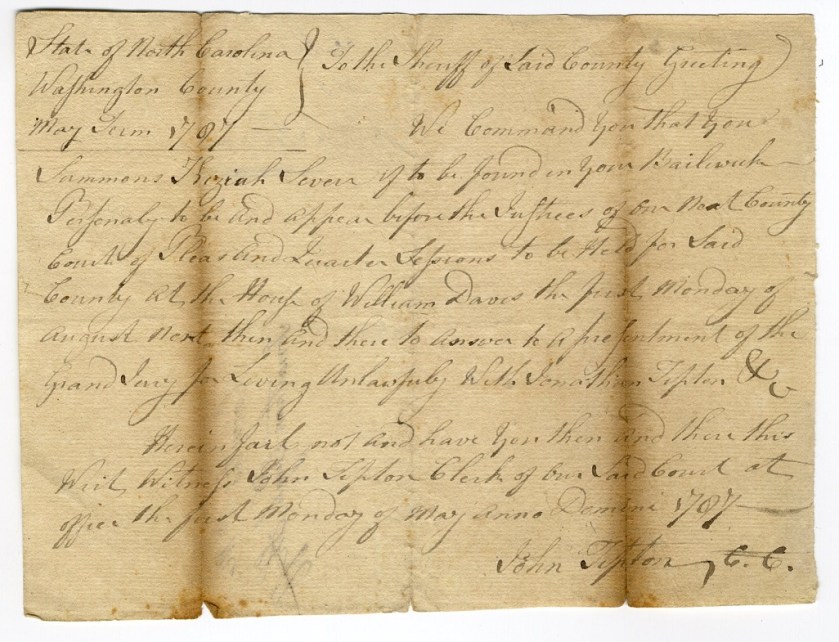 State of North Carolina } To the Sheriff of Said County Greeting
Washington County
May Term 1787 — We Command You that You
Summons Keziah Sevier if to be found in Your Bailiwick
Personaly to be and appear before the Justices of our Next County
Court of Pleas and Quarter Sessions to be Held for Said
County at the House of William Davis the first Monday of
August Next then and there to answer to a presentment of the
Grand Jury for Living Unlawfuly With Jonathan Tipton &c
Herein fail not and have You then and there this
Writ Witness John Tipton Clerk of our Said Court at
office the first Monday of May Anno Domini 1787 —
John Tipton, C. C.